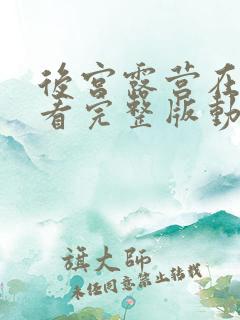 後宮露营在
看完整版動
旗大师
未任同意禁止转载